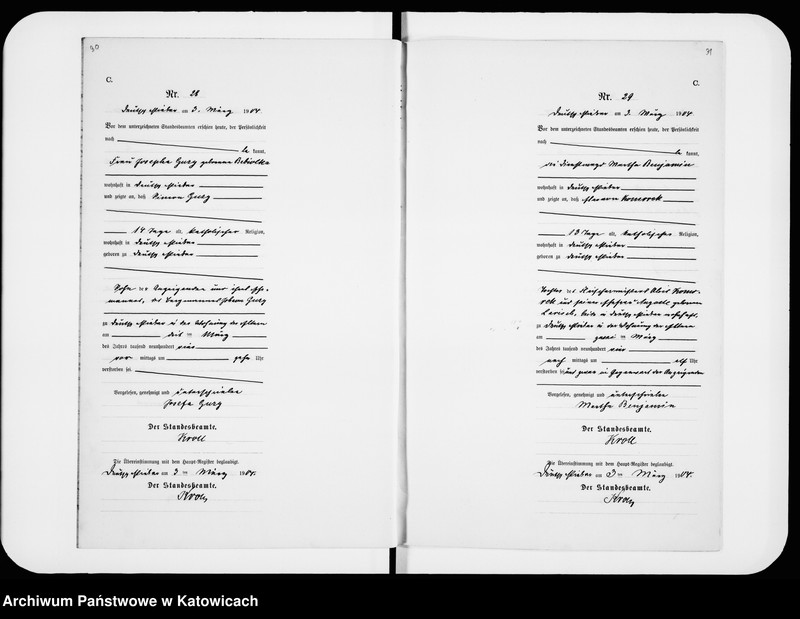 30
C.
Nr. 28
Deutsch am 3. März 1904.
Vor dem unterzeichneten Standesbeamten erschien heute, der Persönlichkeit
nach
be kannt,
Frau Josepha Gurg geborene
wohnhaft in Deutsch
und zeigte an, daß Simon Gurg
14 Tage alt, katholischer Religion,
wohnhaft in Deutsch
geboren zu Deutsch
Sohn der Anzeigenden und ihres Ehe-
mannes, des Bergmannes Gurg
zu Deutsch in der Wohnung der Eltern
am drei ten März
des Jahres tausend neunhundert vier
vor mittags um zehn Uhr
verstorben sei.
Vorgelesen, genehmigt und unterschrieben
Josefa Gurg
Der Standesbeamte.
Kroll
Die Übereinstimmung mit dem Haupt-Register beglaubigt.
Deutsch am 3 ten März 1904.
Der Standesbeamte.
Kroll
31
C.
Nr. 29
Deutsch am 3. März 1904
Vor dem unterzeichneten Standesbeamten erschien heute, der Persönlichkeit
nach
be kannt,
die Dienstmagd Martha Benjamin
wohnhaft in Deutsch
und zeigte an, daß
13 Tage alt, katholischer Religion,
wohnhaft in Deutsch
geboren zu Deutsch
Tochter des
und seiner Ehefrau geborenen
beide in Deutsch wohnhaft.
zu Deutsch in der Wohnung der Eltern
am zwei ten März
des Jahres tausend neunhundert vier
nach mittags um elf Uhr
verstorben sei und zwar in Gegenwart der Anzeigenden
Vorgelesen, genehmigt und unterschrieben
Martha Benjamin
Der Standesbeamte.
Kroll
Die Übereinstimmung mit dem Haupt-Register beglaubigt.
Deutsch am 3 ten März 1904.
Der Standesbeamte.
Kroll
Archiwum Państwowe w Katowicach